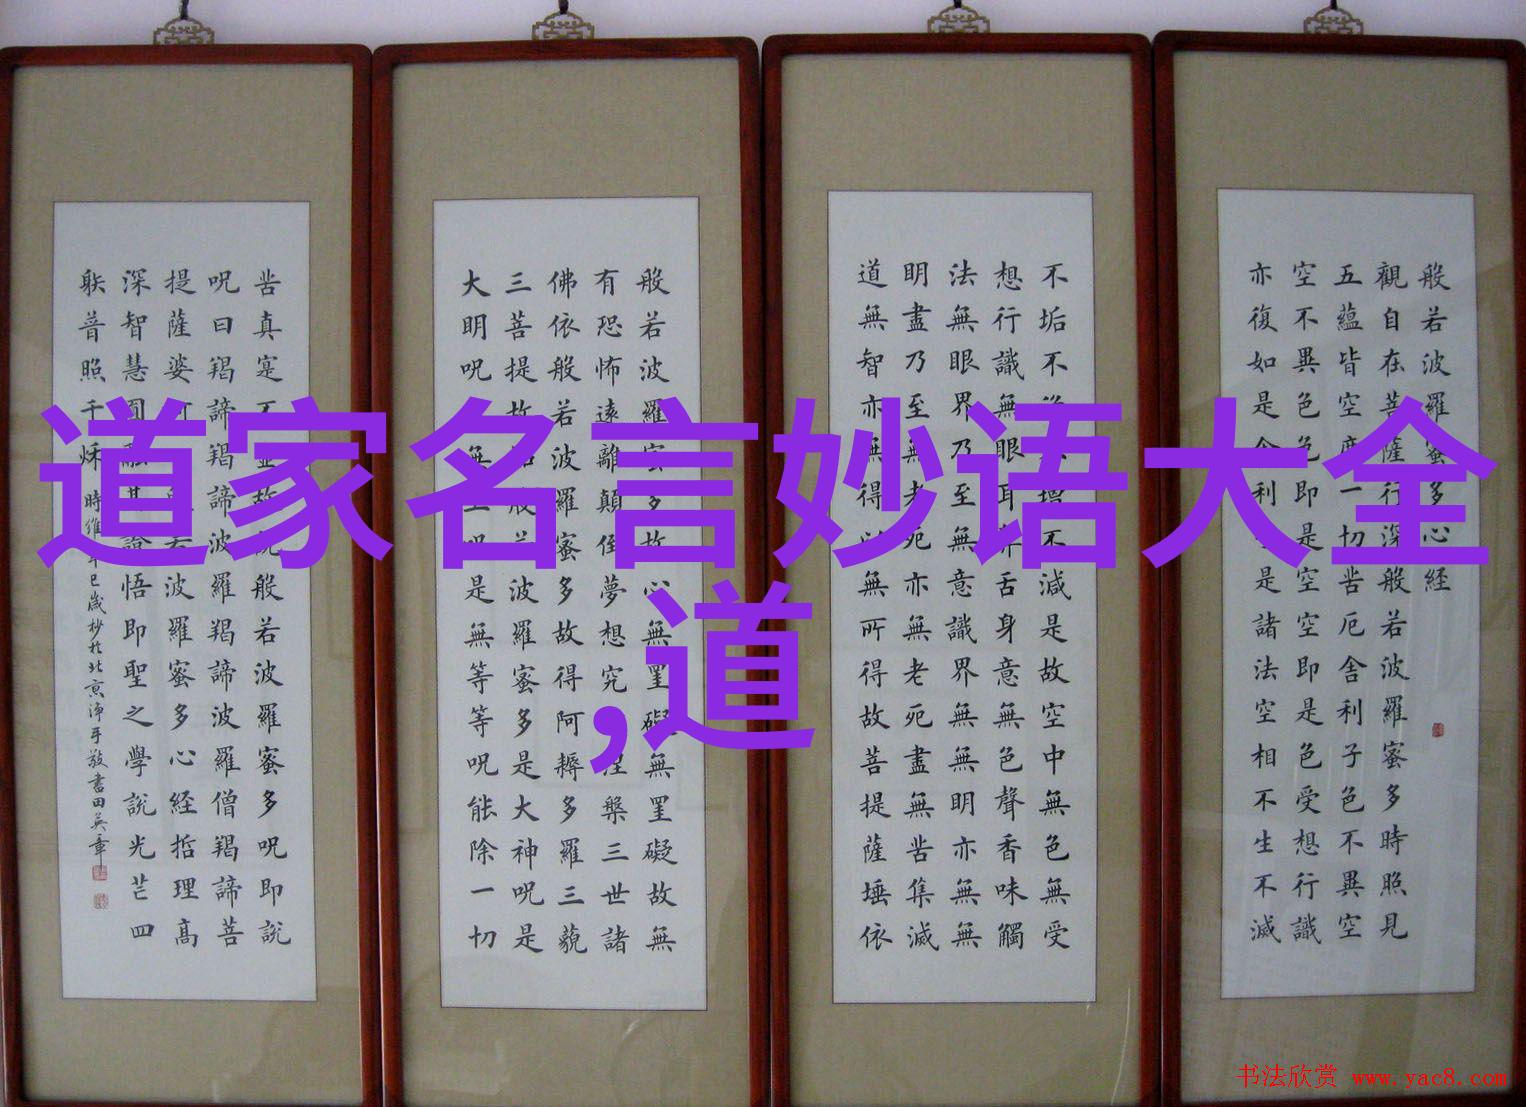 道家名言妙语大全
,道
般若波羅蜜多心経
觀自在菩薩行深般若波羅蜜多時照見
五蘊皆空度一切苦厄舍利子色不異空
空不異色色即是空空即是色受想行識
亦復如是舍利子是諸法空相不生不滅
不垢不增不減是故空中無色無受
想行識無眼耳鼻舌身意無色聲香味觸
法無眼界乃至無意識界無無明亦無無
明盡乃至無老死亦無老死盡無苦集滅
道無智亦無得以無所得故菩提薩埵依
般若波羅蜜多故心無罣礙無罣礙故無
有恐怖遠離顛倒夢想究涅槃三世諸
佛依般若波羅蜜多故得阿耨多羅三藐
三菩提故般若波羅蜜多是大神呪是
大明呪無上呪是無等等呪能除一切
苦真寔不虛故說般若波羅蜜多呪即說
呪曰羯諦羯諦波羅羯諦波羅僧羯諦菩
提薩婆訶若波羅蜜多心経哲理高
深智慧圓融其證悟即聖之學說光芒四
躲普照千秌 時維辛巳歲杪於北京淨手敬書田英章
书法欣赏 www.yac8.com